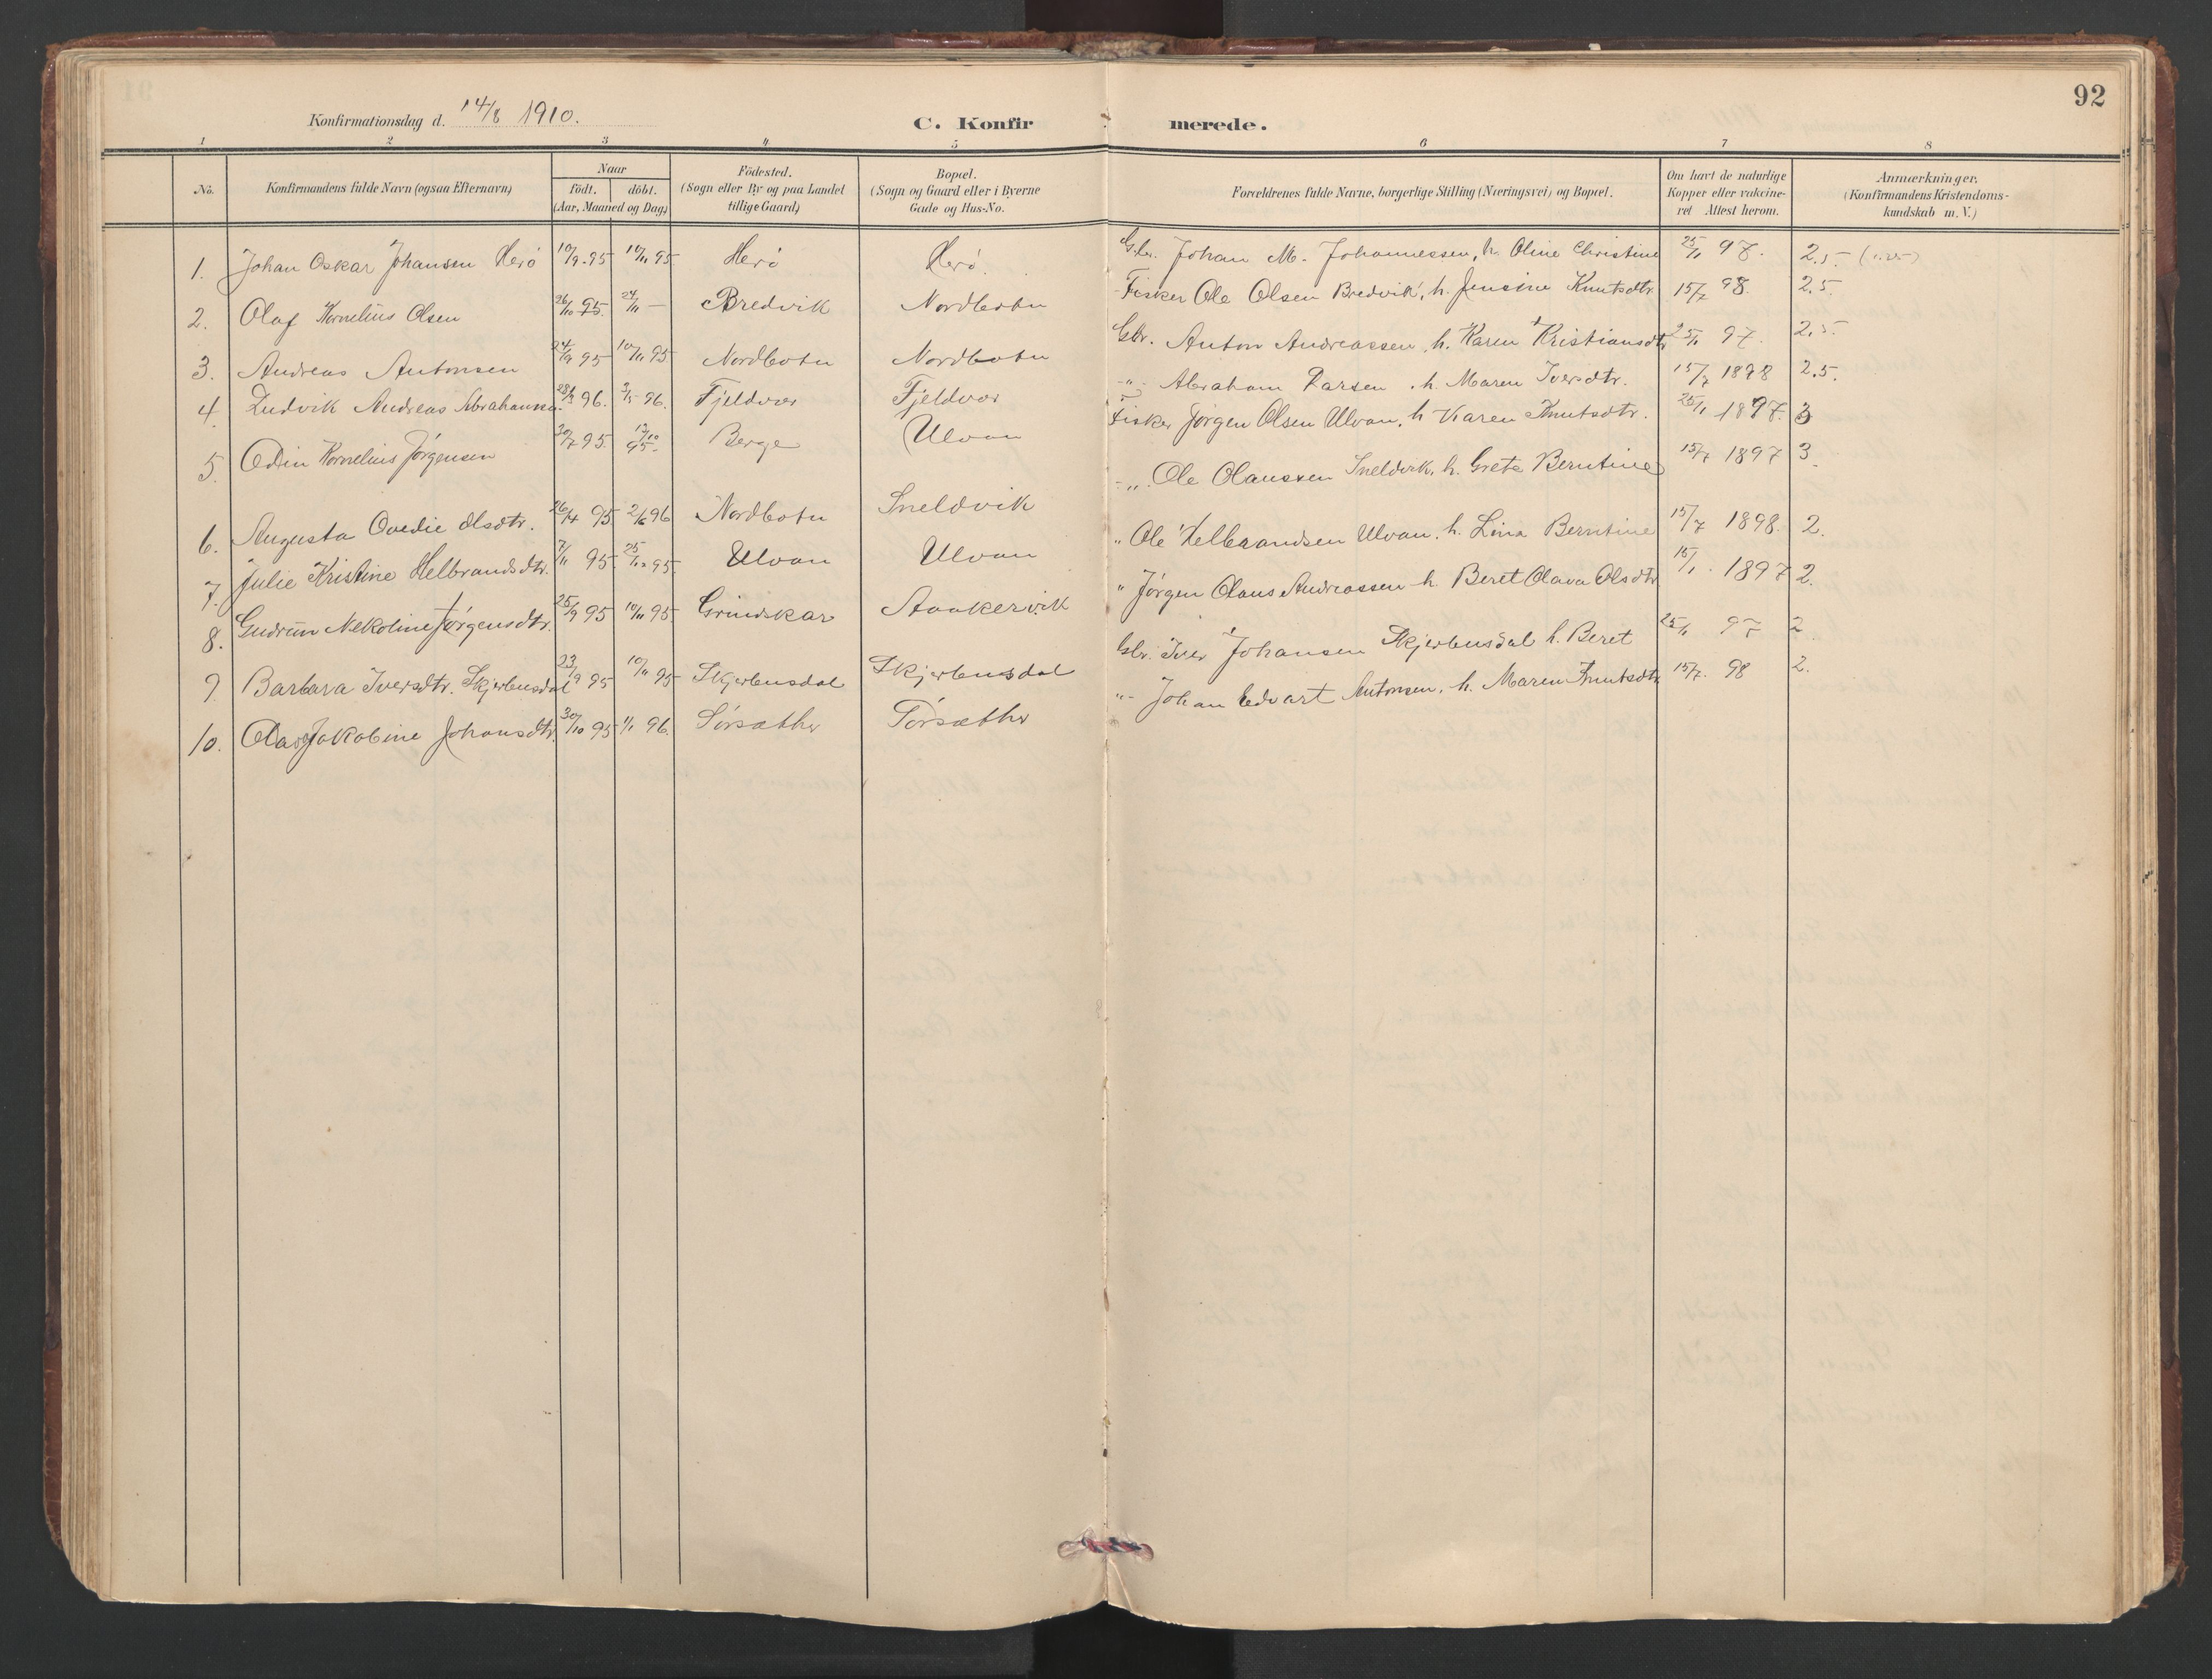 92
Konfirmationsdag d. 14/8 1910.
C. Konfirmerede.
1 2 3 4 5 6 7 8
No. Konfirmandens fulde Navn (ogsaa Efternavn) Naar födt. döbt. (Aar, Maaned og Dag) Födested. (Sogn eller By og paa Landet tillige Gaard) Bopæl. (Sogn og Gaard eller i Byerne Gade og Hus-No. Forældrenes fulde Navne, borgerlige Stilling (Næringsvei) og Bopæl. Om havt de naturlige Kopper eller vakcineret Attest herom. Anmærkninger. (Konfirmandens Kristendomskundskab m. V.)
1. Johan Oskar Johansen Herö 10/9 95 10/11 95 Herö Herö. Gbr. Johan M. Johannessen, h. Oline Christine 25/1 97. 2.5.
2. Olaf Kornelius Olsen 26/10 95. 24/11 — Bredvik Nordbotn Fisker Ole Olsen Bredvik, h. Jensine Knutsdtr. 15/7 98. 2.5.
3. Andreas Antonsen 24/9 95 10/11 95 Nordbotn Nordbotn Gbr. Anton Andreassen, h. Karen Kristiansdtr 25/1 97. 2.5.
4. Ludvik Andreas Abrahamsen 28/3 96. 3/5 96. Fjeldvær Fjeldvær -"- Abraham Larsen, h. Maren Iversdtr. 15/7 1898 2.5.
5. Odin Kornelius Jörgensen 30/7 95. 13/10 95. Berge Ulvan Fisker Jörgen Olsen Ulvan, h. Karen Knutsdtr. 25/1 1897. 3
6. Augusta Ovedie Olsdtr. 26/4 95 2/6 96 Nordbotn Sneldvik -"- Ole Olaussen Sneldvik, h. Grete Berntine 15/7 1897 3.
7. Julie Kristine Helbrandsdtr. 7/11 95 25/12 95 Ulvan Ulvan " Ole Helbrandsen Ulvan, h. Lina Berntine 15/7 1898. 2.
8. Gudrun Nekoline Jörgensdtr. 25/9 95 10/11 95 Grindskar Aaakervik " Jörgen Olaus Andreassen h. Beret Olava Olsdtr 15/1. 1897 2.
9. Barbara Iversdtr. Skjerbusdal 23/9 95 10/11 95 Skjerbusdal Skjerbusdal Gbr. Iver Johansen Skjerbusdal h. Beret 25/1 97 2
10. Olava Jakobine Johansdtr. 30/10 95 1/1 96. Sörsæther Sörsæther "- Johan Edvart Antonsen, h. Maren Knutsdtr. 15/7. 98 2.